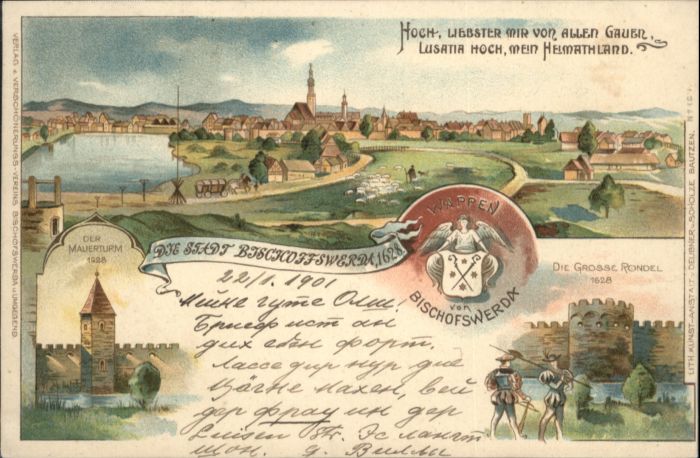 Hoch, liebster mir von allen Gauen,
Lusatia hoch, mein Heimathland.
VERLAG d. VERSCHÖNERUNGS-VEREINS BISCHOFSWERDA u. UMGEGEND
LITH. KUNST-ANSTALT GEBR. SCHOLZE BAUTZEN
DER
MAUERTURM
1628
DIE STADT BISCHOFFSWERDA, 1628
WAPPEN
von
BISCHOFSWERDA
DIE GROSSE RONDEL
1628
22/1. 1901
Мейне гуте Олш!
Бриеф ист ан
дих ебен форт.
Лассе дир нур дие
махен, вей
дер фрау ин дер
Luisen Str. Эс лангт
шон. д. Виллы